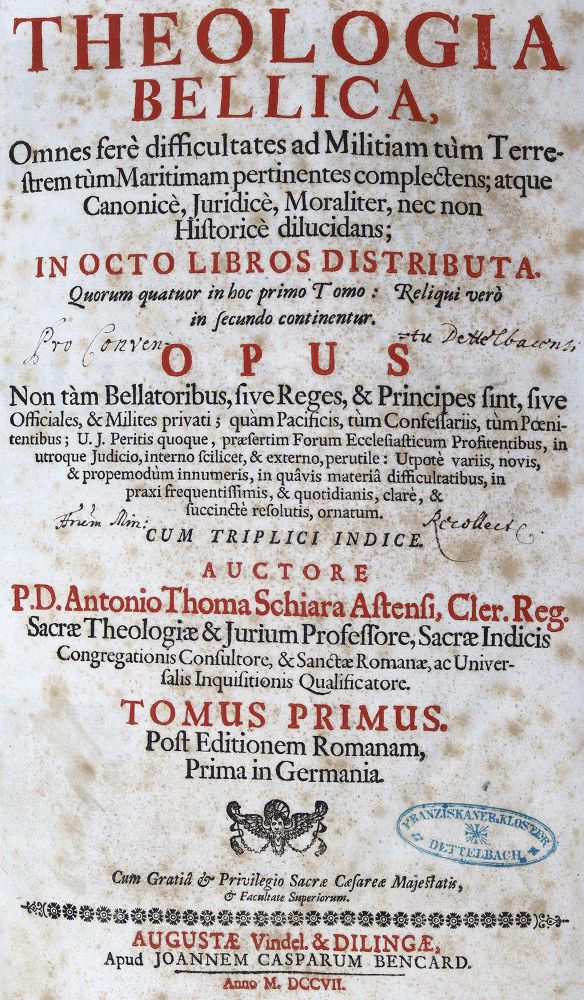 THEOLOGIA
BELLICA,
Omnes ferè difficultates ad Militiam tùm Terre-
ſtrem tùm Maritimam pertinentes complectens; atque
Canonicè, Juridicè, Moraliter, nec non
Hiſtoricè dilucidans;
IN OCTO LIBROS DISTRIBUTA.
Quorum quatuor in hoc primo Tomo: Reliqui verò
in ſecundo continentur.
Pro Conven-tu Dettelbacensi
OPUS
Non tàm Bellatoribus, ſive Reges, & Principes ſint, ſive
Officiales, & Milites privati; quàm Pacificis, tùm Confeſſariis, tùm Pœni-
tentibus; U. J. Peritis quoque, præſertim Forum Eccleſiaſticum Profitentibus, in
utroque Judicio, interno ſcilicet, & externo, perutile: Utpotè variis, novis,
& propemodùm innumeris, in quâvis materiâ difficultatibus, in
praxi frequentiſſimis, & quotidianis, clarè, &
ſuccinctè reſolutis, ornatum.
Frum Min: Recollect:
CUM TRIPLICI INDICE.
AUCTORE
P.D. Antonio Thoma Schiara Aſtenſi, Cler. Reg.
Sacræ Theologiæ & Jurium Profeſſore, Sacræ Indicis
Congregationis Conſultore, & Sanctæ Romanæ, ac Univer-
ſalis Inquiſitionis Qualificatore.
TOMUS PRIMUS.
Poſt Editionem Romanam,
Prima in Germania.
FRANZISKANER-KLOSTER
DETTELBACH
Cum Gratiâ & Privilegio Sacræ Cæſareæ Majeſtatis,
& Facultate Superiorum.
AUGUSTÆ Vindel. & DILINGÆ,
Apud JOANNEM CASPARUM BENCARD.
Anno M. DCCVII.